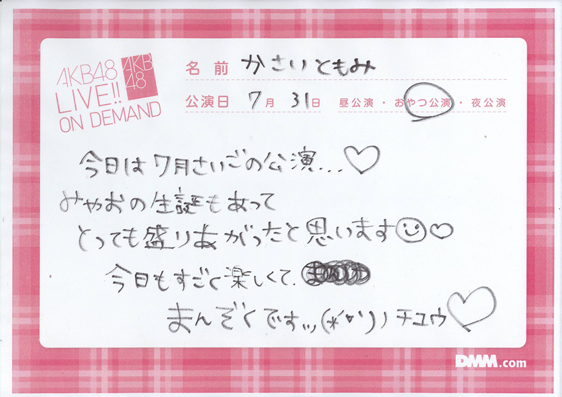 AKB48
LIVE!!
ON DEMAND
AKB
48
名前 かさいともみ
公演日 7月 31日 昼公演・おやつ公演・夜公演
今日は7月さいごの公演...♡
みやおの生誕もあって
とっても盛りあがったと思います☺♡
今日もすごく楽しくて、
まんぞくですッ(*´▽`)ノチュウ♡
DMM.com